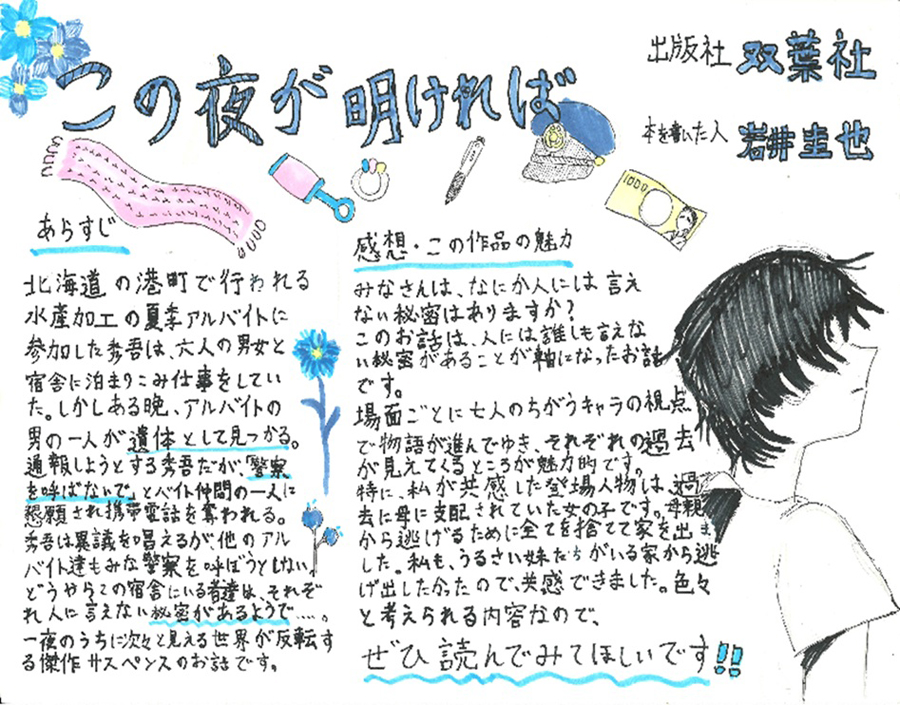 この夜が明ければ
出版社 双葉社
本を書いた人 岩井圭也
1000
あらすじ
北海道の港町で行われる
水産加工の夏季アルバイトに
参加した秀吾は、六人の男女と
宿舎に泊まりこみ仕事をしてい
た。しかしある晩、アルバイトの
男の一人が遺体として見つかる。
通報しようとする秀吾だが、「警察
を呼ばないで」とバイト仲間の一人に
懇願され携帯電話を奪われる。
秀吾は異議を唱えるが、他のアル
バイト達もみな警察を呼ぼうとしない。
どうやらこの宿舎にいる者達は、それぞ
れ人に言えない秘密があるようで……。
一夜のうちに次々と見える世界が反転す
る傑作サスペンスのお話です。
感想・この作品の魅力
みなさんは、なにか人には言え
ない秘密はありますか？
このお話は、人には誰しも言えな
い秘密があることが軸になったお話
です。
場面ごとに七人のちがうキャラの視点
で物語が進んでゆき、それぞれの過去
が見えてくるところが魅力的です。
特に、私が共感した登場人物は、過
去に母に支配されていた女の子です。母親
から逃げるために全てを捨てて家を出ま
した。私も、うるさい妹たちがいる家から逃
げ出したかったので、共感できました。色々
と考えられる内容なので、
ぜひ読んでみてほしいです!!